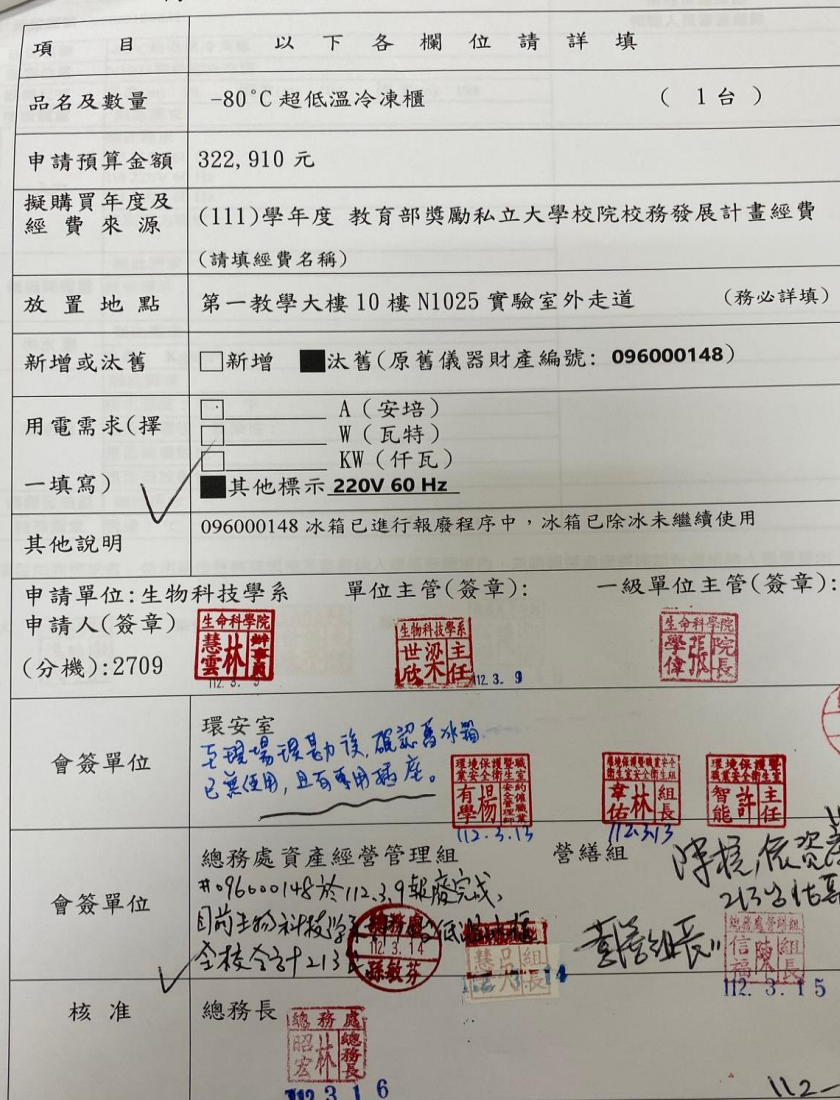 項 目 以下各欄位請詳填
品名及數量 -80°C 超低溫冷凍櫃 ( 1台 )
申請預算金額 322,910 元
擬購買年度及
經費來源 (111)學年度 教育部獎勵私立大學校院校務發展計畫經費
(請填經費名稱)
放置地點 第一教學大樓 10 樓 N1025 實驗室外走道 (務必詳填)
新增或汰舊 □新增 ■汰舊(原舊儀器財產編號: 096000148)
用電需求(擇
一填寫)
□________ A (安培)
□________ W (瓦特)
□________ KW (仟瓦)
■其他標示 220V 60 Hz
其他說明 096000148 冰箱已進行報廢程序中,冰箱已除冰未繼續使用
申請單位:生物科技學系 單位主管(簽章): 一級單位主管(簽章):
申請人(簽章)
(分機):2709
生命科學院 林慧雲 辦事員
112.3.9
生物科技學系 主任 梁世欣
112.3.9
生命科學院 院長 張學偉
會簽單位 環安室
至現場現勘後,確認舊冰箱
已無使用,且有專用插座。
環境保護暨職業安全衛生室 楊有學
112.3.13
環境保護暨職業安全衛生室 組長 林韋佑
112.3.13
環境保護暨職業安全衛生室 主任 許智能
會簽單位 總務處資產經營管理組 營繕組
#096000148於112.3.9報廢完成,
目前生物科技學
全校合計213
總務處 112.3.14 孫敏芬
組長
14
總務處營繕組 組長 陳信福
112.3.15
核准 總務長
總務處 總務長 林昭宏
112.3.16
112-